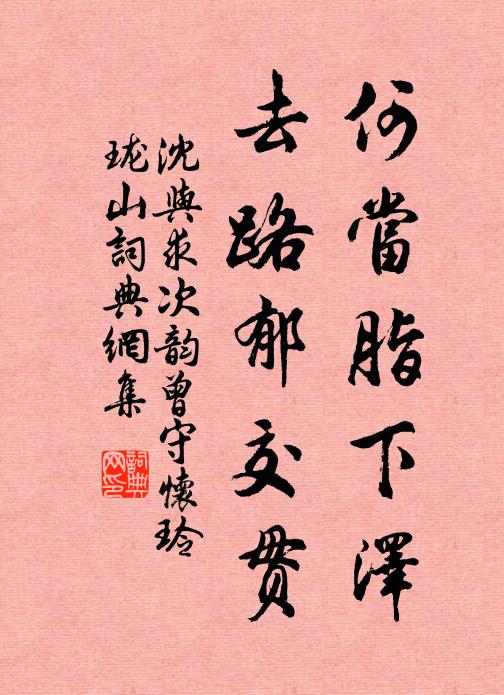 何當脂下澤
去路郁交貫
沈與求次韵曾守懷玲
瓏山詞典網集
詞典网印